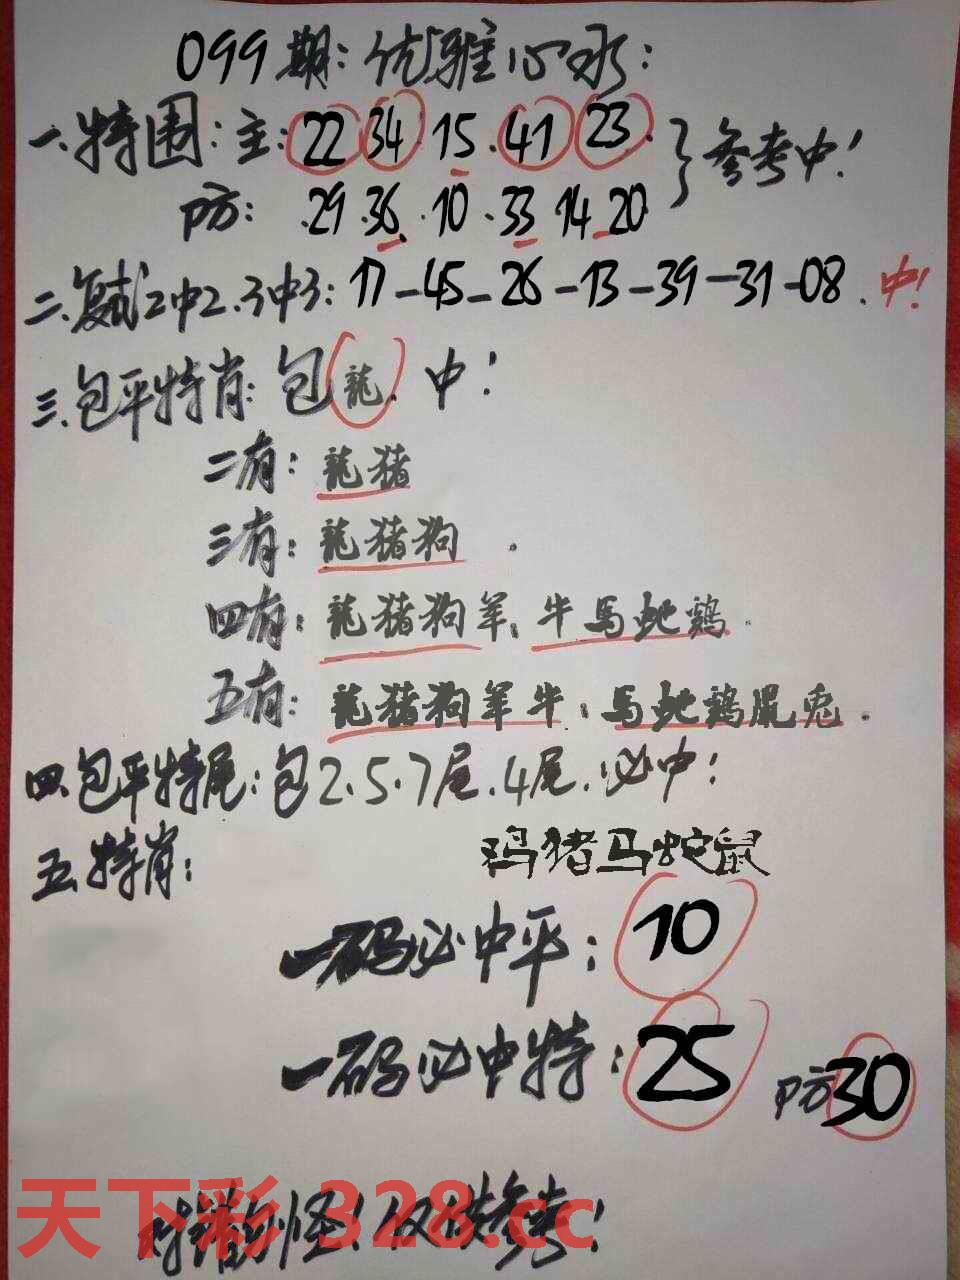 099期:优雅心水:
一.特围:主:22 34.15.41.23. }参考中!
防:.29.36.10.33 14 20
二.复式2中2.3中3:17-45-26-13-39-31-08.中!
三.包平特肖:包龍.中!
二有:龍猪
三有:龍猪狗.
四有:龍猪狗羊、牛馬蛇鶏.
五有:龍猪狗羊牛、馬蛇鶏鼠兔.
四.包平特尾:包2.5.7尾.4尾.必中!
五.特肖: 鸡猪马蛇鼠
一码必中平:10
一码必中特:25 防30
天下彩 328.cc
错别怪!仅供参考!